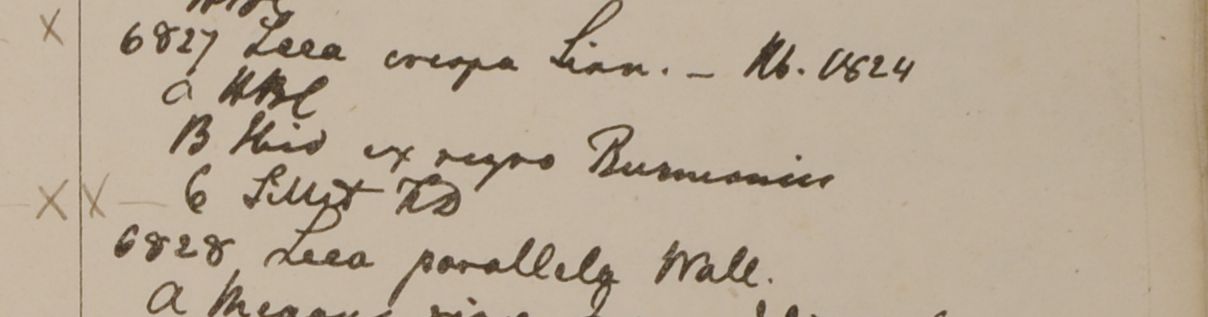 6827 Leea crispa Linn. - Hb. 1824
a HBC
B Ibid ex regno Burmanic
C Sillet FD
6828 Leea parallela Wall.
a